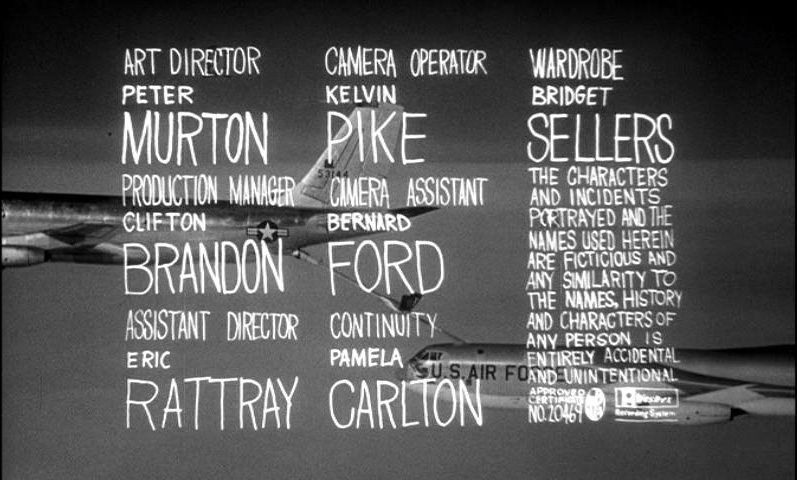 ART DIRECTOR
PETER
MURTON
PRODUCTION MANAGER
CLIFTON
BRANDON
ASSISTANT DIRECTOR
ERIC
RATTRAY
CAMERA OPERATOR
KELVIN
PIKE
CAMERA ASSISTANT
BERNARD
FORD
CONTINUITY
PAMELA
CARLTON
WARDROBE
BRIDGET
SELLERS
THE CHARACTERS
AND INCIDENTS
PORTRAYED AND THE
NAMES USED HEREIN
ARE FICTICIOUS AND
ANY SIMILARITY TO
THE NAMES, HISTORY
AND CHARACTERS OF
ANY PERSON IS
ENTIRELY ACCIDENTAL
AND UNINTENTIONAL
APPROVED
CERTIFICATE
NO. 20469
Recording System
53144
U.S. AIR FORCE